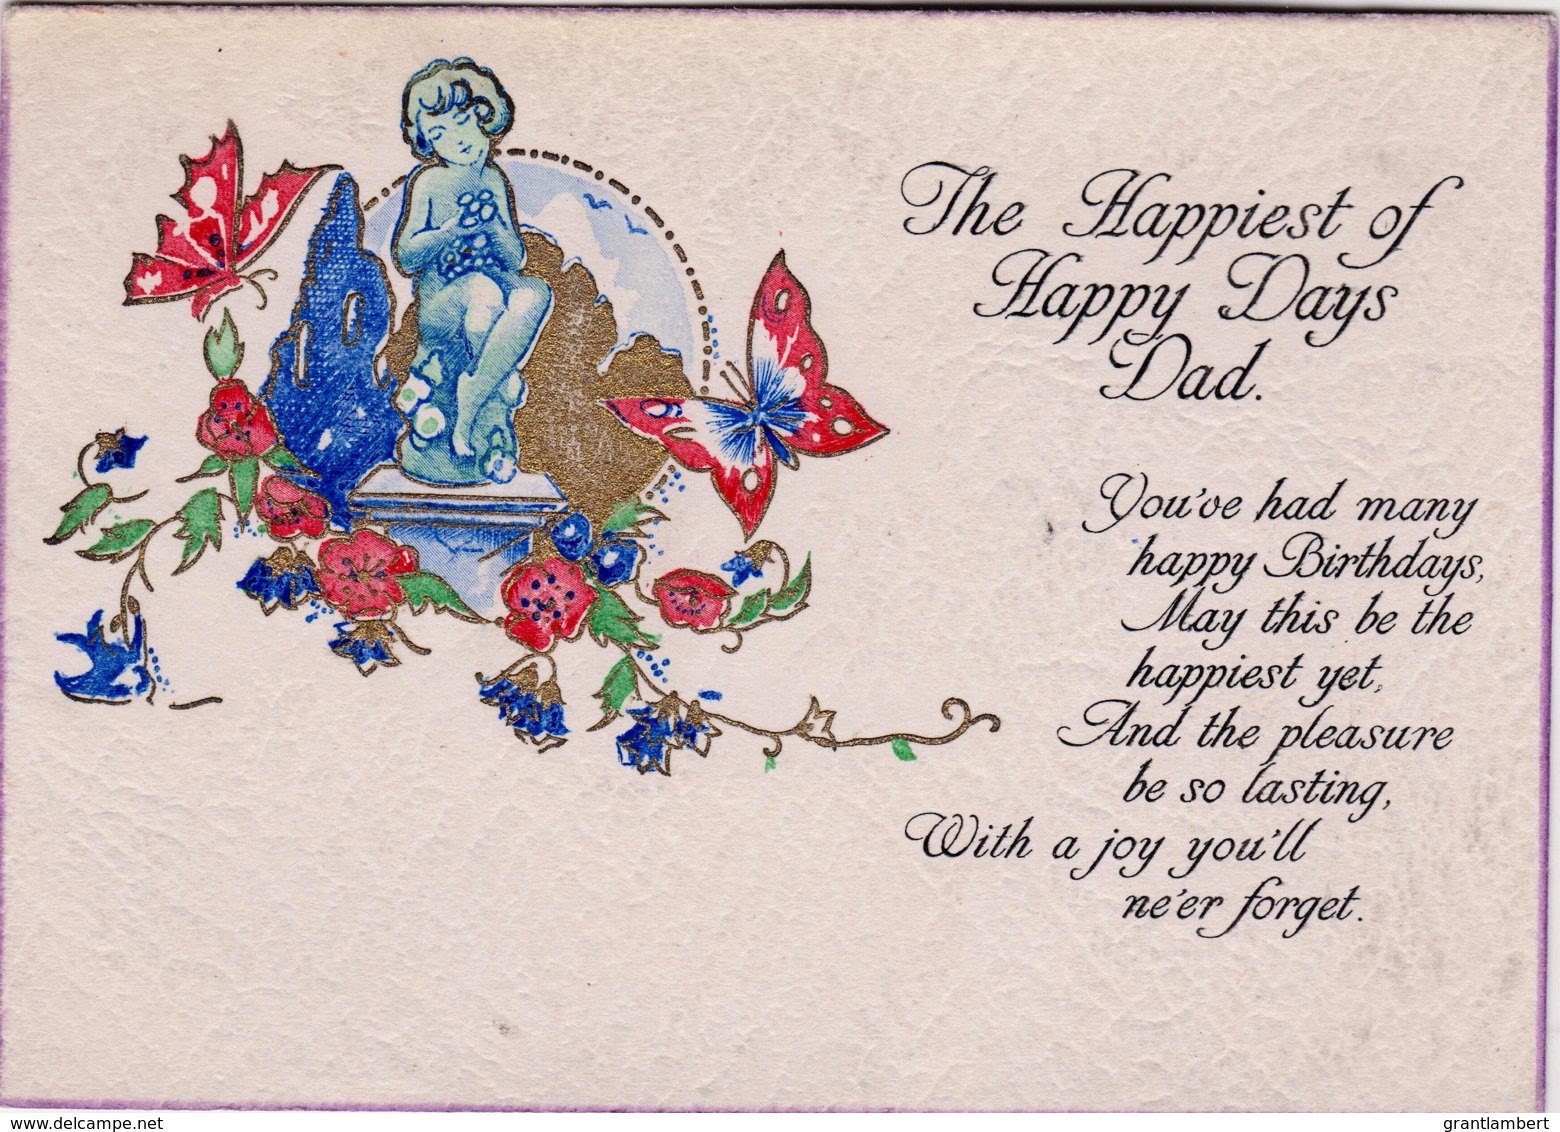 The Happiest of
Happy Days
Dad.
You've had many
happy Birthdays,
May this be the
happiest yet,
And the pleasure
be so lasting,
With a joy you'll
ne'er forget.
www.delcampe.net
grantlambert